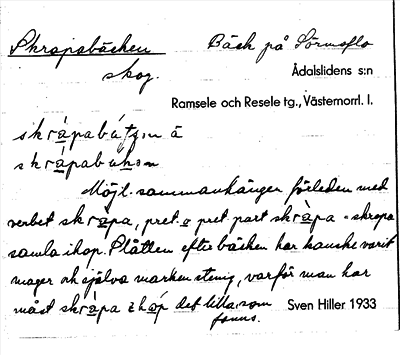 Skrapabäcken Bäck på Sörmoflo
skog. Ådalslidens s:n
Ramsele och Resele tg., Västernorrl. l.
skràpabátʒ,n ä
skràpabúhən
Möjl. sammanhänger förleden med
verbet skràpa, pret. o pret part skràpa = skrapa
samla ihop. Slåtten efter bäcken har kanske varit
mager och själva marken stenig, varför man har
måst skràpa ihóp det lilla, som
fanns. Sven Hiller 1933